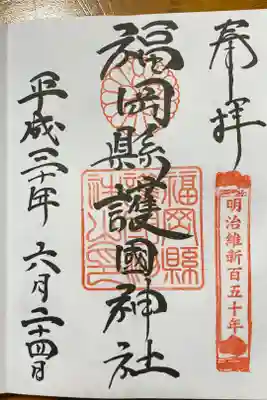 奉拝
明治維新百五十年
福岡縣護國神社
平成三十年六月二十四日